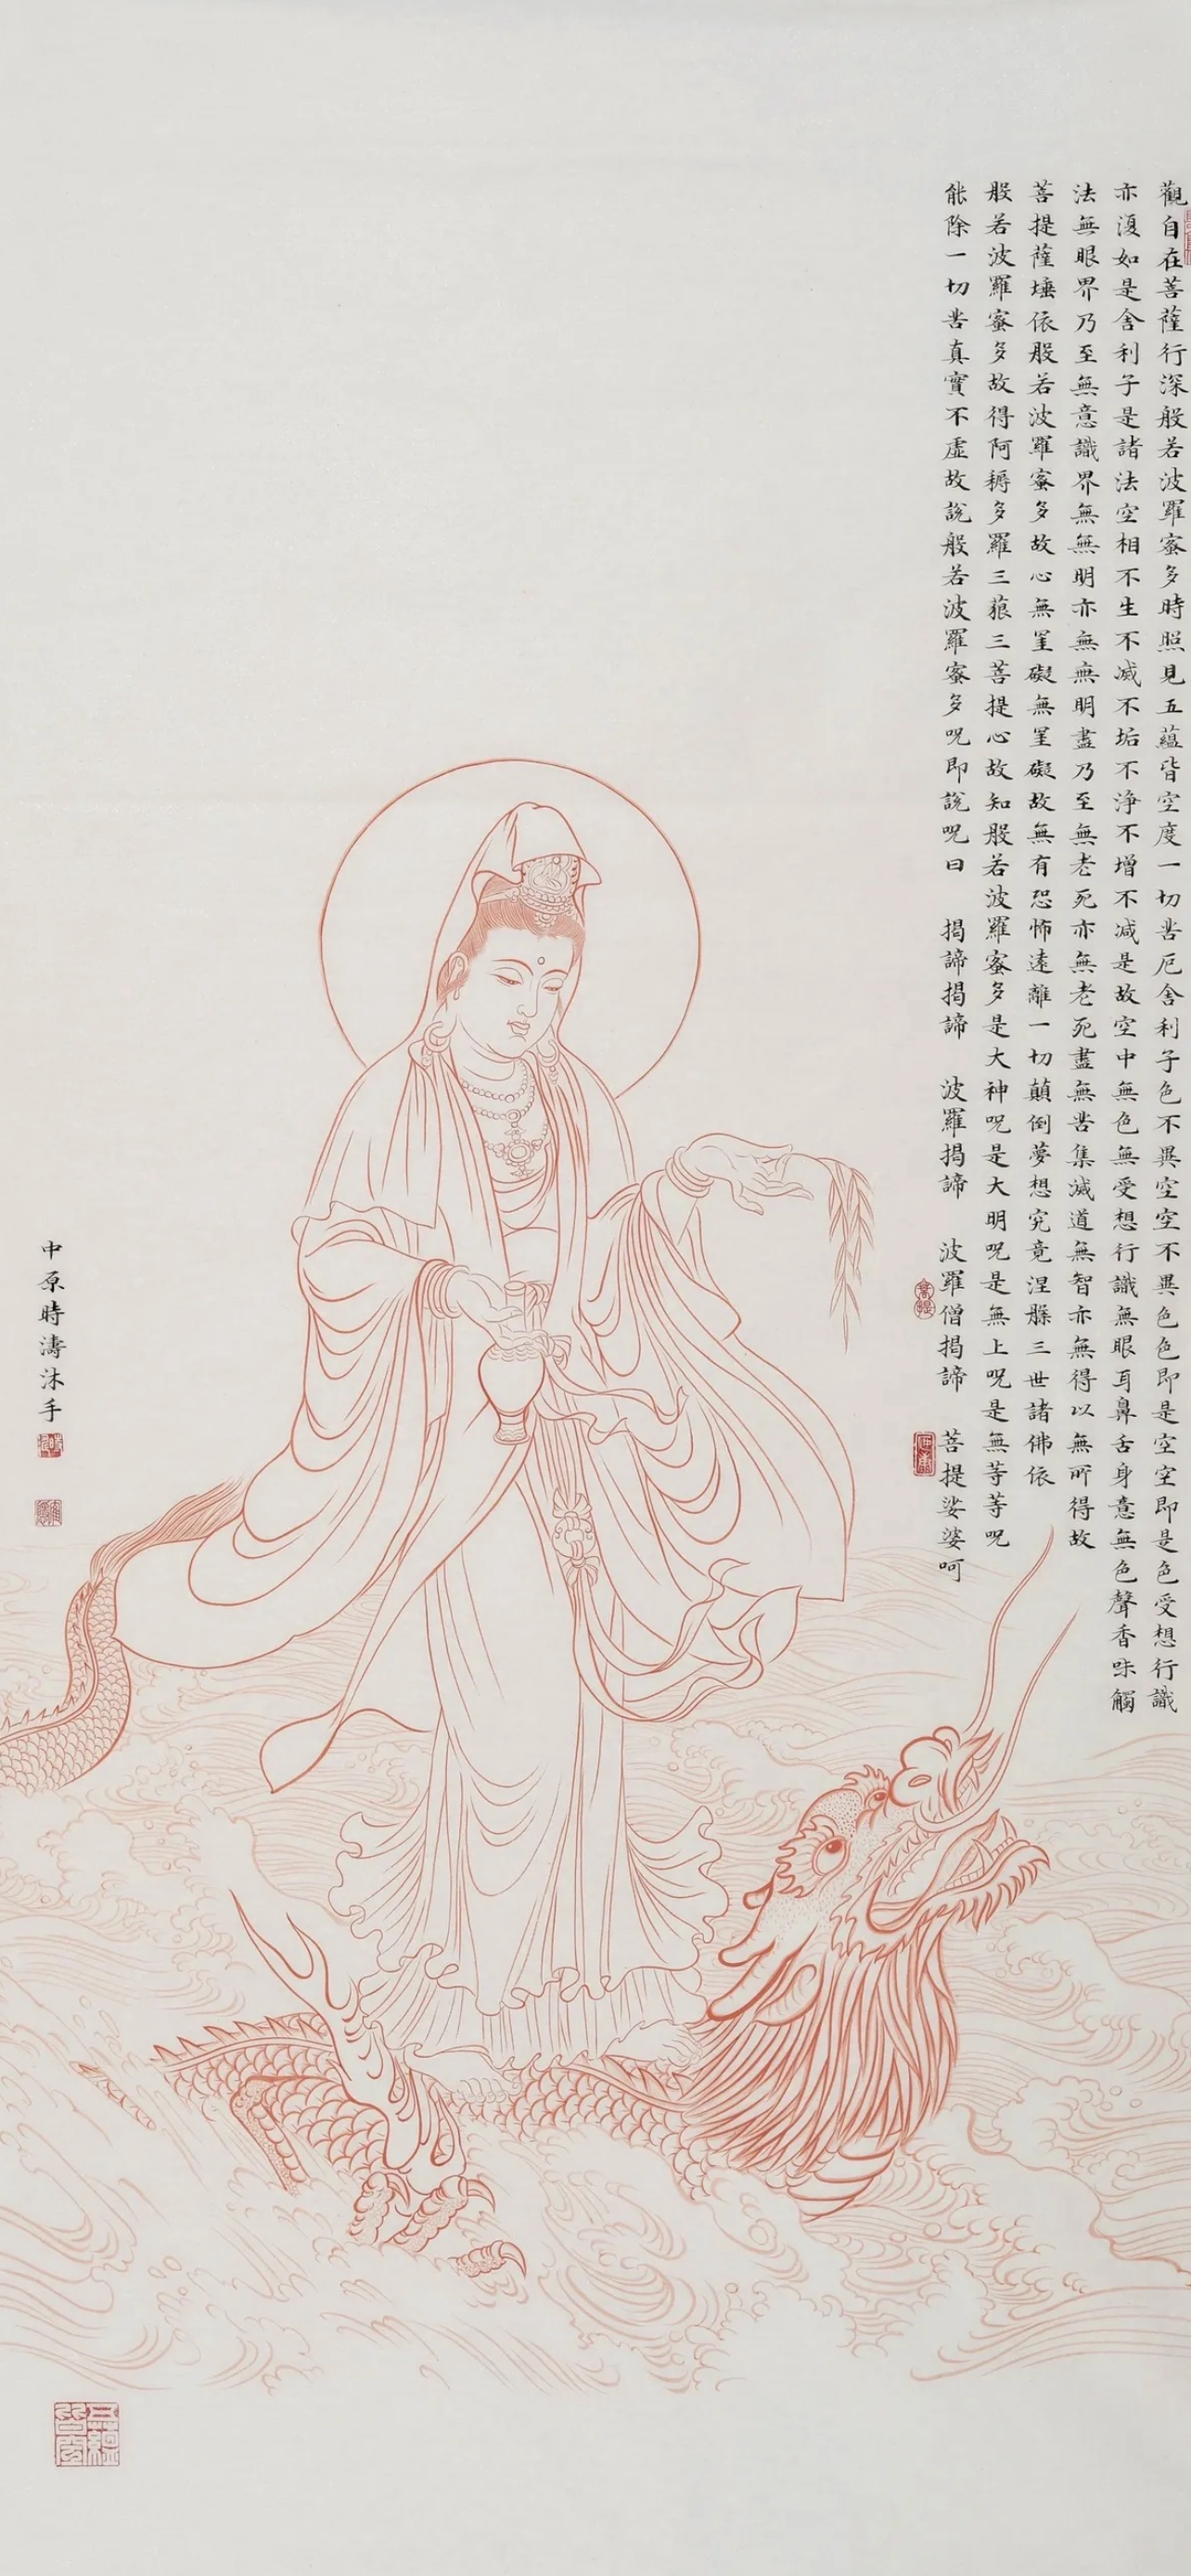 觀自在菩薩行深般若波羅蜜多時照見五蘊皆空度一切苦厄舍利子色不異空空不異色色即是空空即是色受想行識
亦復如是舍利子是諸法空相不生不滅不垢不淨不增不減是故空中無色無受想行識無眼耳鼻舌身意無色聲香味觸
法無眼界乃至無意識界無無明亦無無明盡乃至無老死亦無老死盡無苦集滅道無智亦無得以無所得故
菩提薩埵依般若波羅蜜多故心無罣礙無罣礙故無有恐怖遠離一切顛倒夢想究竟涅槃三世諸佛依
般若波羅蜜多故得阿耨多羅三藐三菩提心故知般若波羅蜜多是大神呪是大明呪是無上呪是無等等呪
能除一切苦真實不虛故說般若波羅蜜多呪即說呪曰 揭諦揭諦 波羅揭諦 波羅僧揭諦 菩提娑婆呵
菩提
中原時濤沐手
五蘊皆空